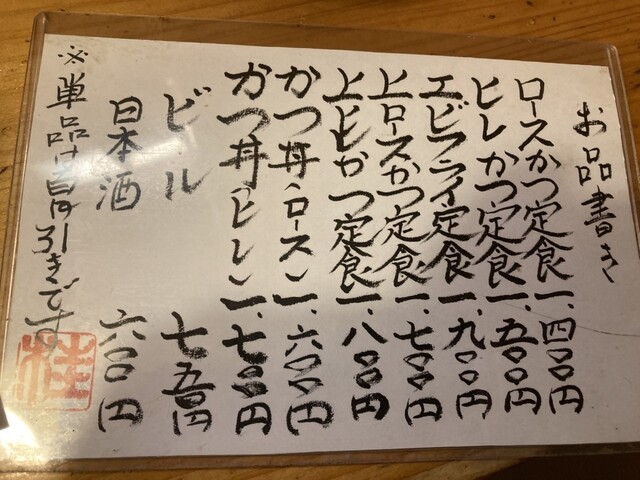 お品書き
ロースかつ定食 一、四〇〇円
ヒレかつ定食 一、五〇〇円
エビフライ定食 一、九〇〇円
上ロースかつ定食 一、七〇〇円
上ヒレかつ定食 一、八〇〇円
かつ丼(ロース) 一、六〇〇円
かつ丼(ヒレ) 一、七〇〇円
ビール 七五〇円
日本酒 六〇〇円
※単品は百円引きです
桂